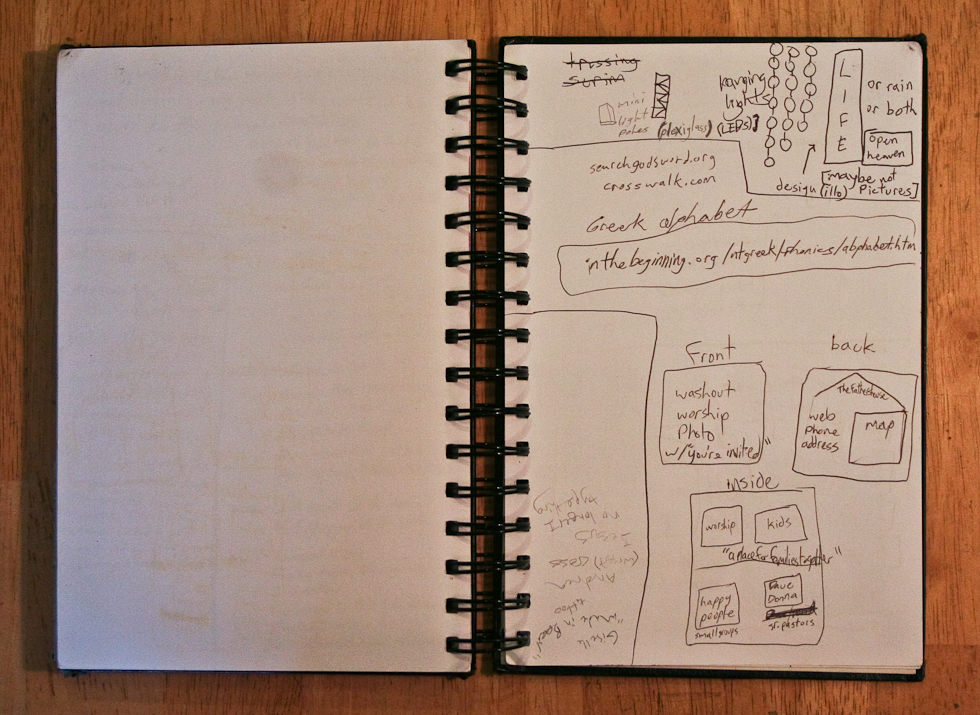 trussing
hanging
lights
mini
light
poles (plexiglass) (LEDs)]
L
I
F
E
or rain
or both
open
heaven
design (illo) [maybe not
Pictures]
searchgodsword.org
crosswalk.com
Greek alphabet
inthebeginning.org/ntgreek/phonics/alphabet.htm
Front
washout
worship
Photo
w/"you're invited"
back
The Father's House
web
phone
address
map
inside
worship
kids
"a place for families together"
happy
people
small groups
Dave
Donna
sr. pastors
Giselle
"made in Brazil"
tattoo
Andrea
(wrist) cross
Jesus
no longer I